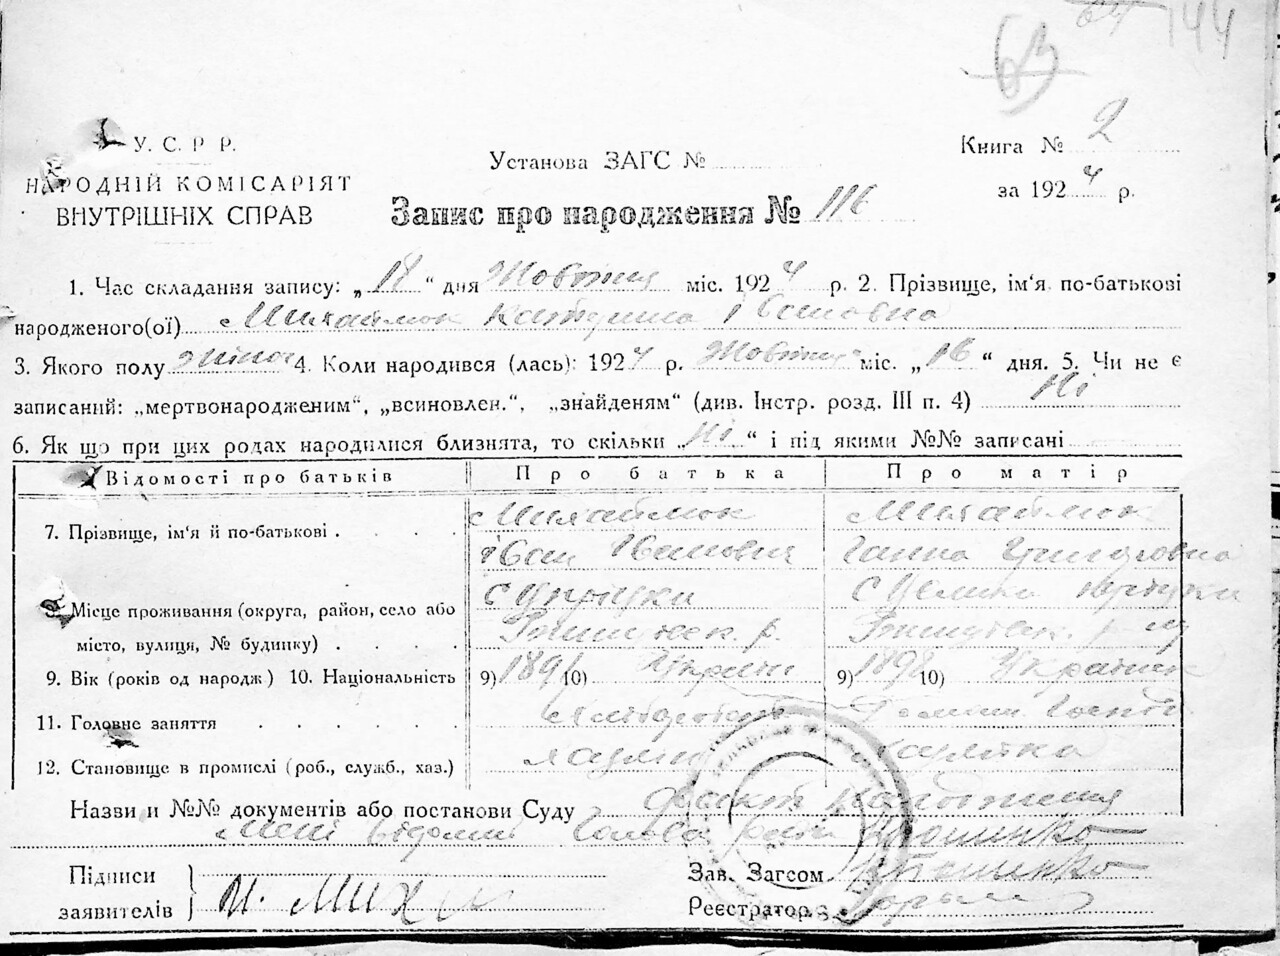 144
63
У. С. Р Р.
НАРОДНІЙ КОМІСАРІЯТ
ВНУТРІШНІХ СПРАВ
Установа ЗАГС №
Книга № 2
за 1924 р.
Запис про народження № 116
1. Час складання запису: „18“ дня Жовтня міс. 1924 р. 2. Прізвище, ім'я по-батькові
народженого(ої) Михайлюк Катерина Івановна
3. Якого полу жіноч 4. Коли народився (лась): 1924 р. Жовтня міс. „16“ дня. 5. Чи не є
записаний: „мертвонародженим“, „всиновлен.“, „знайденям“ (див. Інстр. розд. III п. 4) Ні
6. Як що при цих родах народилися близнята, то скільки „Ні“ і під якими №№ записані
Відомості про батьків Про батька Про матір
7. Прізвище, ім'я й по-батькові . . . . Михайлюк Михайлюк
Іван Іванович Ганна Григоровна
8. Місце проживання (округа, район, село або
місто, вулиця, № будинку) . . . .
9. Вік (років од народж.) 10. Національність 9) 189 10) Україн 9) 1898 10) Українк
11. Головне заняття . . . . . Хлібороб
12. Становище в промислі (роб., служб., хаз.) хазяїн
Назви и №№ документів або постанови Суду факт народження
мені відомий Голова
Підписи
заявителів И. Мих
Зав. Загсом
Реєстратор